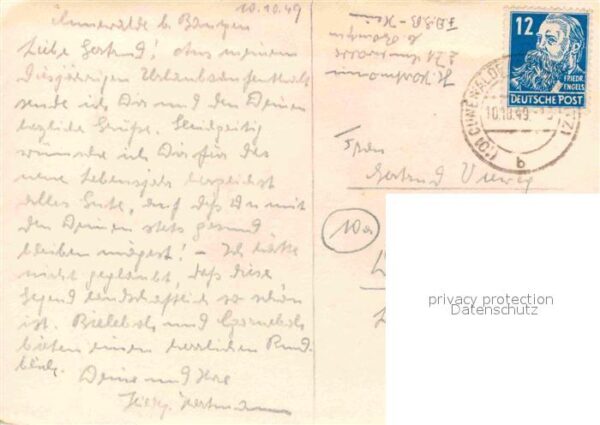 10.10.49
Cunewalde b. Bautzen
Liebe Gertrud! Aus meinem
diesjährigen Urlaubsaufenthalt
sende ich Dir und den Deinen
herzliche Grüße. Gleichzeitig
wünsche ich Dir für das
neue Lebensjahr herzlichst
alles Gute, auf daß Du mit
den Deinen stets gesund
bleiben mögest! – Ich hätte
nicht geglaubt, daß diese
Gegend landschaftlich so schön
ist. Bieleboh und Czorneboh
bieten einen herrlichen Rund-
blick. Deine und Ihre
Hartmann
H. Hartmann
12
FRIEDR. ENGELS
DEUTSCHE POST
(10) CUNEWALDE
10.10.49
b
Frau
Gertrud Vieweg
10a
privacy protection
Datenschutz